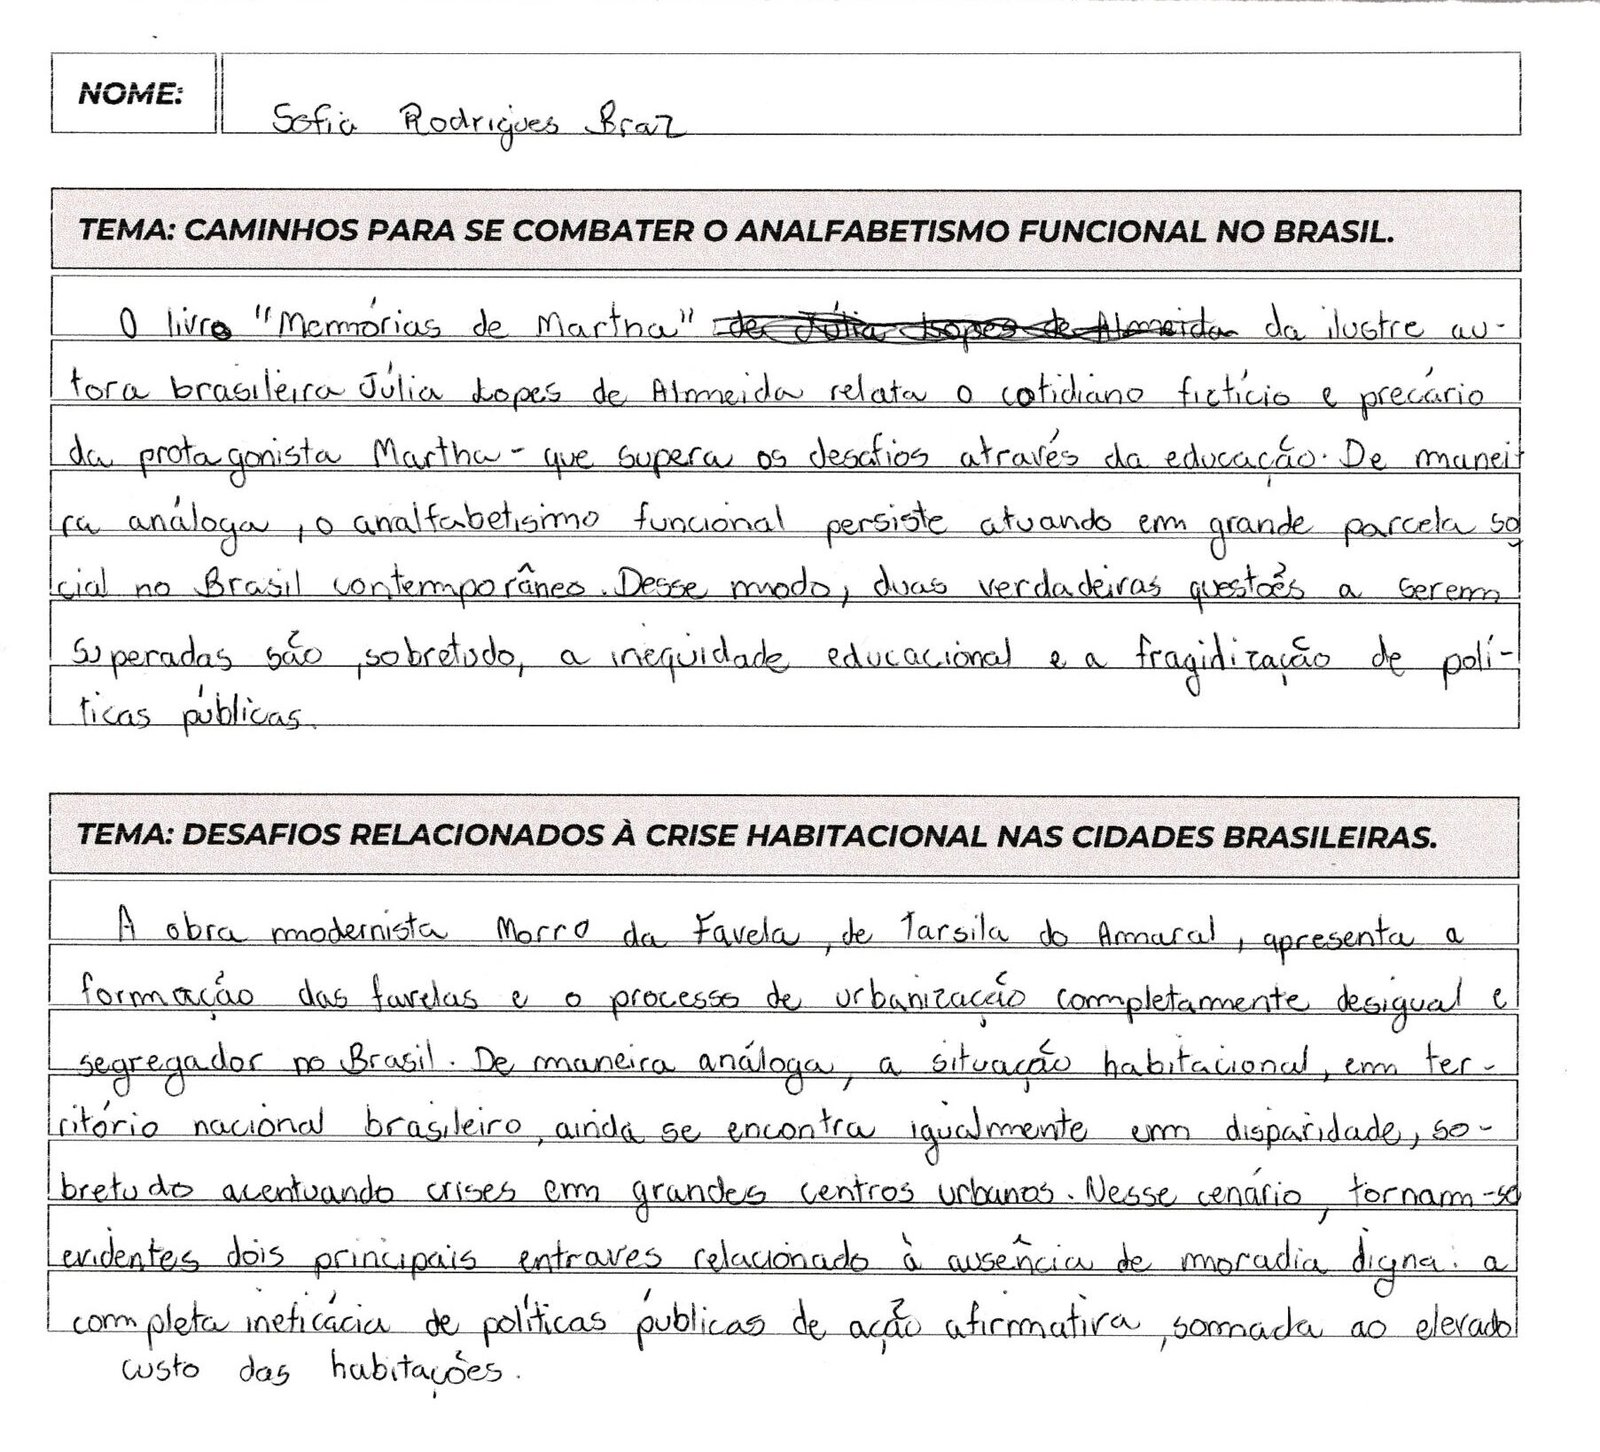 NOME: Sofia Rodrigues Braz
TEMA: CAMINHOS PARA SE COMBATER O ANALFABETISMO FUNCIONAL NO BRASIL.
O livro "Memórias de Martha" de Júlia Lopes de Almeida da ilustre au-
tora brasileira Júlia Lopes de Almeida relata o cotidiano fictício e precário
da protagonista Martha - que supera os desafios através da educação. De manei
ra análoga, o analfabetismo funcional persiste atuando em grande parcela so
cial no Brasil contemporâneo. Desse modo, duas verdadeiras questões a serem
superadas são, sobretudo, a inequidade educacional e a fragidização de polí-
ticas públicas.
TEMA: DESAFIOS RELACIONADOS À CRISE HABITACIONAL NAS CIDADES BRASILEIRAS.
A obra modernista Morro da Favela, de Tarsila do Amaral, apresenta a
formação das favelas e o processo de urbanização completamente desigual e
segregador no Brasil. De maneira análoga, a situação habitacional, em ter-
ritório nacional brasileiro, ainda se encontra igualmente em disparidade, so-
bretudo acentuando crises em grandes centros urbanos. Nesse cenário, tornam-se
evidentes dois principais entraves relacionado à ausência de moradia digna: a
completa ineficácia de políticas públicas de ação afirmativa, somada ao elevado
custo das habitações.